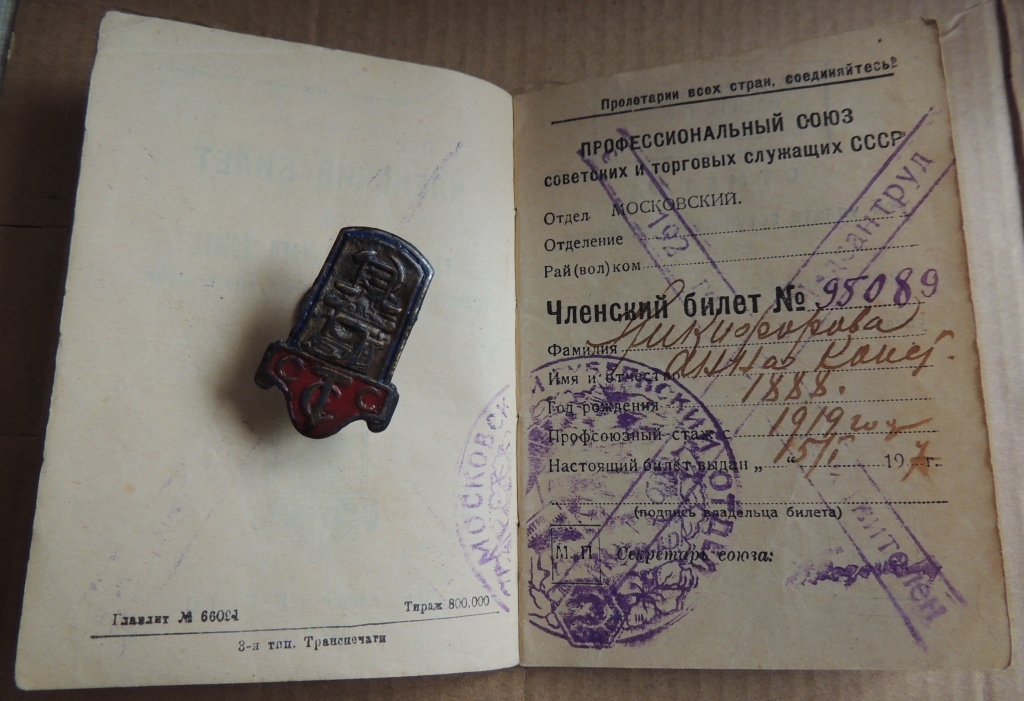 Главлит № 66091
Тираж 800.000
3-я тип. Транспечати
Пролетарии всех стран, соединяйтесь!
ПРОФЕССИОНАЛЬНЫЙ СОЮЗ
советских и торговых служащих СССР
Отдел МОСКОВСКИЙ.
Отделение
Рай(вол)ком
Членский билет № 95089
Фамилия Никифорова
Имя и отчество Анна Конст.
Год рождения 1888.
Профсоюзный стаж 1919 год
Настоящий билет выдан „ 15/I “ 197 г.
(подпись владельца билета)
М. П.
Секретарь союза:
МОСКОВСКИЙ ГУБЕРНСКИЙ ОТДЕЛ